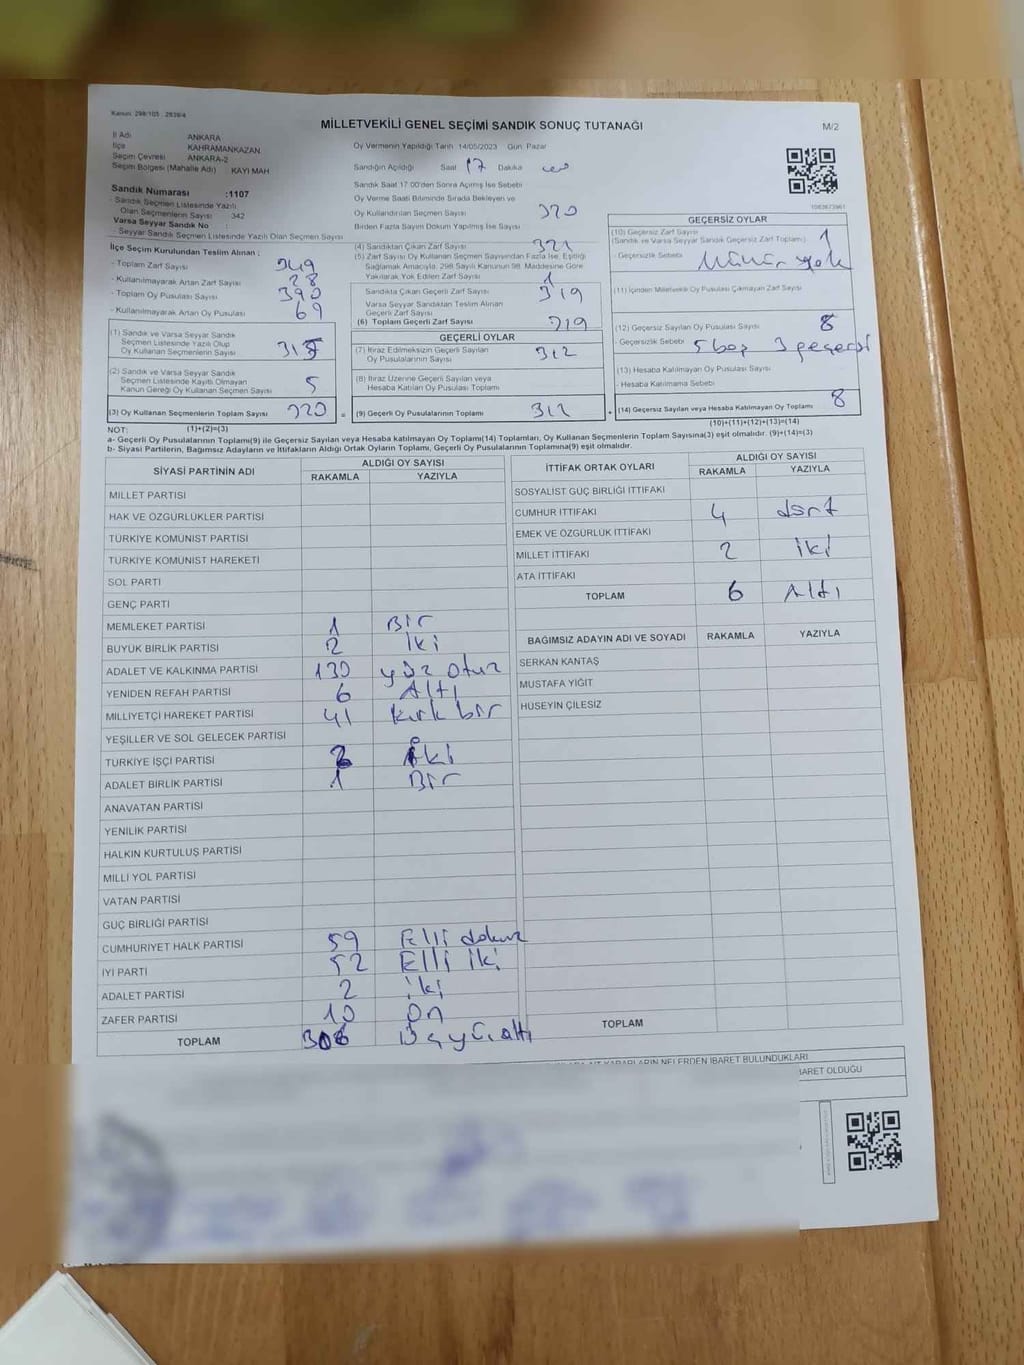 Kanun 298/105 2839/4
MİLLETVEKİLİ GENEL SEÇİMİ SANDIK SONUÇ TUTANAĞI
M/2
İl Adı ANKARA
İlçe KAHRAMANKAZAN
Seçim Çevresi ANKARA-2
Seçim Bölgesi (Mahalle Adı) KAYI MAH
Sandık Numarası :1107
- Sandık Seçmen Listesinde Yazılı
Olan Seçmenlerin Sayısı 342
Varsa Seyyar Sandık No :
- Seyyar Sandık Seçmen Listesinde Yazılı Olan Seçmen Sayısı
İlçe Seçim Kurulundan Teslim Alınan :
- Toplam Zarf Sayısı 349
- Kullanılmayarak Artan Zarf Sayısı 28
- Toplam Oy Pusulası Sayısı 390
- Kullanılmayarak Artan Oy Pusulası 69
(1) Sandık ve Varsa Seyyar Sandık
Seçmen Listesinde Yazılı Olup
Oy Kullanan Seçmenlerin Sayısı 315
(2) Sandık ve Varsa Seyyar Sandık
Seçmen Listesinde Kayıtlı Olmayan
Kanun Gereği Oy Kullanan Seçmen Sayısı 5
(3) Oy Kullanan Seçmenlerin Toplam Sayısı 320
(1)+(2)=(3)
Oy Vermenin Yapıldığı Tarih 14/05/2023 Gün Pazar
Sandığın Açıldığı Saat 17 Dakika
Sandık Saat 17:00'den Sonra Açılmış İse Sebebi
Oy Verme Saati Bitiminde Sırada Bekleyen ve
Oy Kullandırılan Seçmen Sayısı 320
Birden Fazla Sayım Döküm Yapılmış İse Sayısı
(4) Sandıktan Çıkan Zarf Sayısı 321
(5) Zarf Sayısı Oy Kullanan Seçmen Sayısından Fazla İse, Eşitliği
Sağlamak Amacıyla, 298 Sayılı Kanunun 98. Maddesine Göre
Yakılarak Yok Edilen Zarf Sayısı 1
Sandıkta Çıkan Geçerli Zarf Sayısı 319
Varsa Seyyar Sandıktan Teslim Alınan
Geçerli Zarf Sayısı
(6) Toplam Geçerli Zarf Sayısı 319
GEÇERLİ OYLAR
(7) İtiraz Edilmeksizin Geçerli Sayılan
Oy Pusulalarının Sayısı 312
(8) İtiraz Üzerine Geçerli Sayılan veya
Hesaba Katılan Oy Pusulası Toplamı
= (9) Geçerli Oy Pusulalarının Toplamı 312
1083673961
GEÇERSİZ OYLAR
(10) Geçersiz Zarf Sayısı
(Sandık ve Varsa Seyyar Sandık Geçersiz Zarf Toplamı) 1
- Geçersizlik Sebebi Mühür yok
(11) İçinden Milletvekili Oy Pusulası Çıkmayan Zarf Sayısı
(12) Geçersiz Sayılan Oy Pusulası Sayısı 8
- Geçersizlik Sebebi 5 boş 3 geçersi
(13) Hesaba Katılmayan Oy Pusulası Sayısı
- Hesaba Katılmama Sebebi
+ (14) Geçersiz Sayılan veya Hesaba Katılmayan Oy Toplamı 8
(10)+(11)+(12)+(13)=(14)
NOT:
a- Geçerli Oy Pusulalarının Toplamı(9) ile Geçersiz Sayılan veya Hesaba katılmayan Oy Toplamı(14) Toplamları, Oy Kullanan Seçmenlerin Toplam Sayısına(3) eşit olmalıdır. (9)+(14)=(3)
b- Siyasi Partilerin, Bağımsız Adayların ve İttifakların Aldığı Ortak Oyların Toplamı, Geçerli Oy Pusulalarının Toplamına(9) eşit olmalıdır.
SİYASİ PARTİNİN ADI ALDIĞI OY SAYISI
RAKAMLA YAZIYLA
MİLLET PARTİSİ
HAK VE ÖZGÜRLÜKLER PARTİSİ
TÜRKİYE KOMÜNİST PARTİSİ
TÜRKİYE KOMÜNİST HAREKETİ
SOL PARTİ
GENÇ PARTİ
MEMLEKET PARTİSİ 1 Bir
BÜYÜK BİRLİK PARTİSİ 2 İki
ADALET VE KALKINMA PARTİSİ 130 yüz otuz
YENİDEN REFAH PARTİSİ 6 Altı
MİLLİYETÇİ HAREKET PARTİSİ 41 kırk bir
YEŞİLLER VE SOL GELECEK PARTİSİ
TÜRKİYE İŞÇİ PARTİSİ 2 İki
ADALET BİRLİK PARTİSİ 1 Bir
ANAVATAN PARTİSİ
YENİLİK PARTİSİ
HALKIN KURTULUŞ PARTİSİ
MİLLİ YOL PARTİSİ
VATAN PARTİSİ
GÜÇ BİRLİĞİ PARTİSİ
CUMHURİYET HALK PARTİSİ 59 Elli dokuz
İYİ PARTİ 52 Elli iki
ADALET PARTİSİ 2 iki
ZAFER PARTİSİ 10 On
TOPLAM 306 Üçyüzaltı
İTTİFAK ORTAK OYLARI ALDIĞI OY SAYISI
RAKAMLA YAZIYLA
SOSYALİST GÜÇ BİRLİĞİ İTTİFAKI
CUMHUR İTTİFAKI 4 dört
EMEK VE ÖZGÜRLÜK İTTİFAKI
MİLLET İTTİFAKI 2 iki
ATA İTTİFAKI
TOPLAM 6 Altı
BAĞIMSIZ ADAYIN ADI VE SOYADI RAKAMLA YAZIYLA
SERKAN KANTAŞ
MUSTAFA YİĞİT
HÜSEYİN ÇİLESİZ
TOPLAM
NELERDEN İBARET BULUNDUKLARI
İBARET OLDUĞU